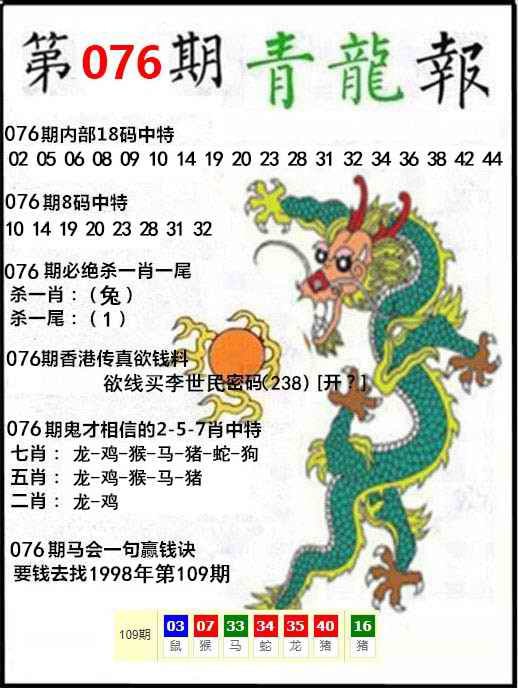 第076期 青龍報
076期内部18码中特
02 05 06 08 09 10 14 19 20 23 28 31 32 34 36 38 42 44
076期8码中特
10 14 19 20 23 28 31 32
076 期必绝杀一肖一尾
杀一肖：（兔）
杀一尾：（1）
076期香港传真欲钱料
欲线买李世民密码(238) [开？]
076 期鬼才相信的2-5-7肖中特
七肖： 龙-鸡-猴-马-猪-蛇-狗
五肖： 龙-鸡-猴-马-猪
二肖： 龙-鸡
076 期马会一句赢钱诀
要钱去找1998年第109期
109期 03 07 33 34 35 40 16
鼠 猴 马 蛇 龙 猪 猪